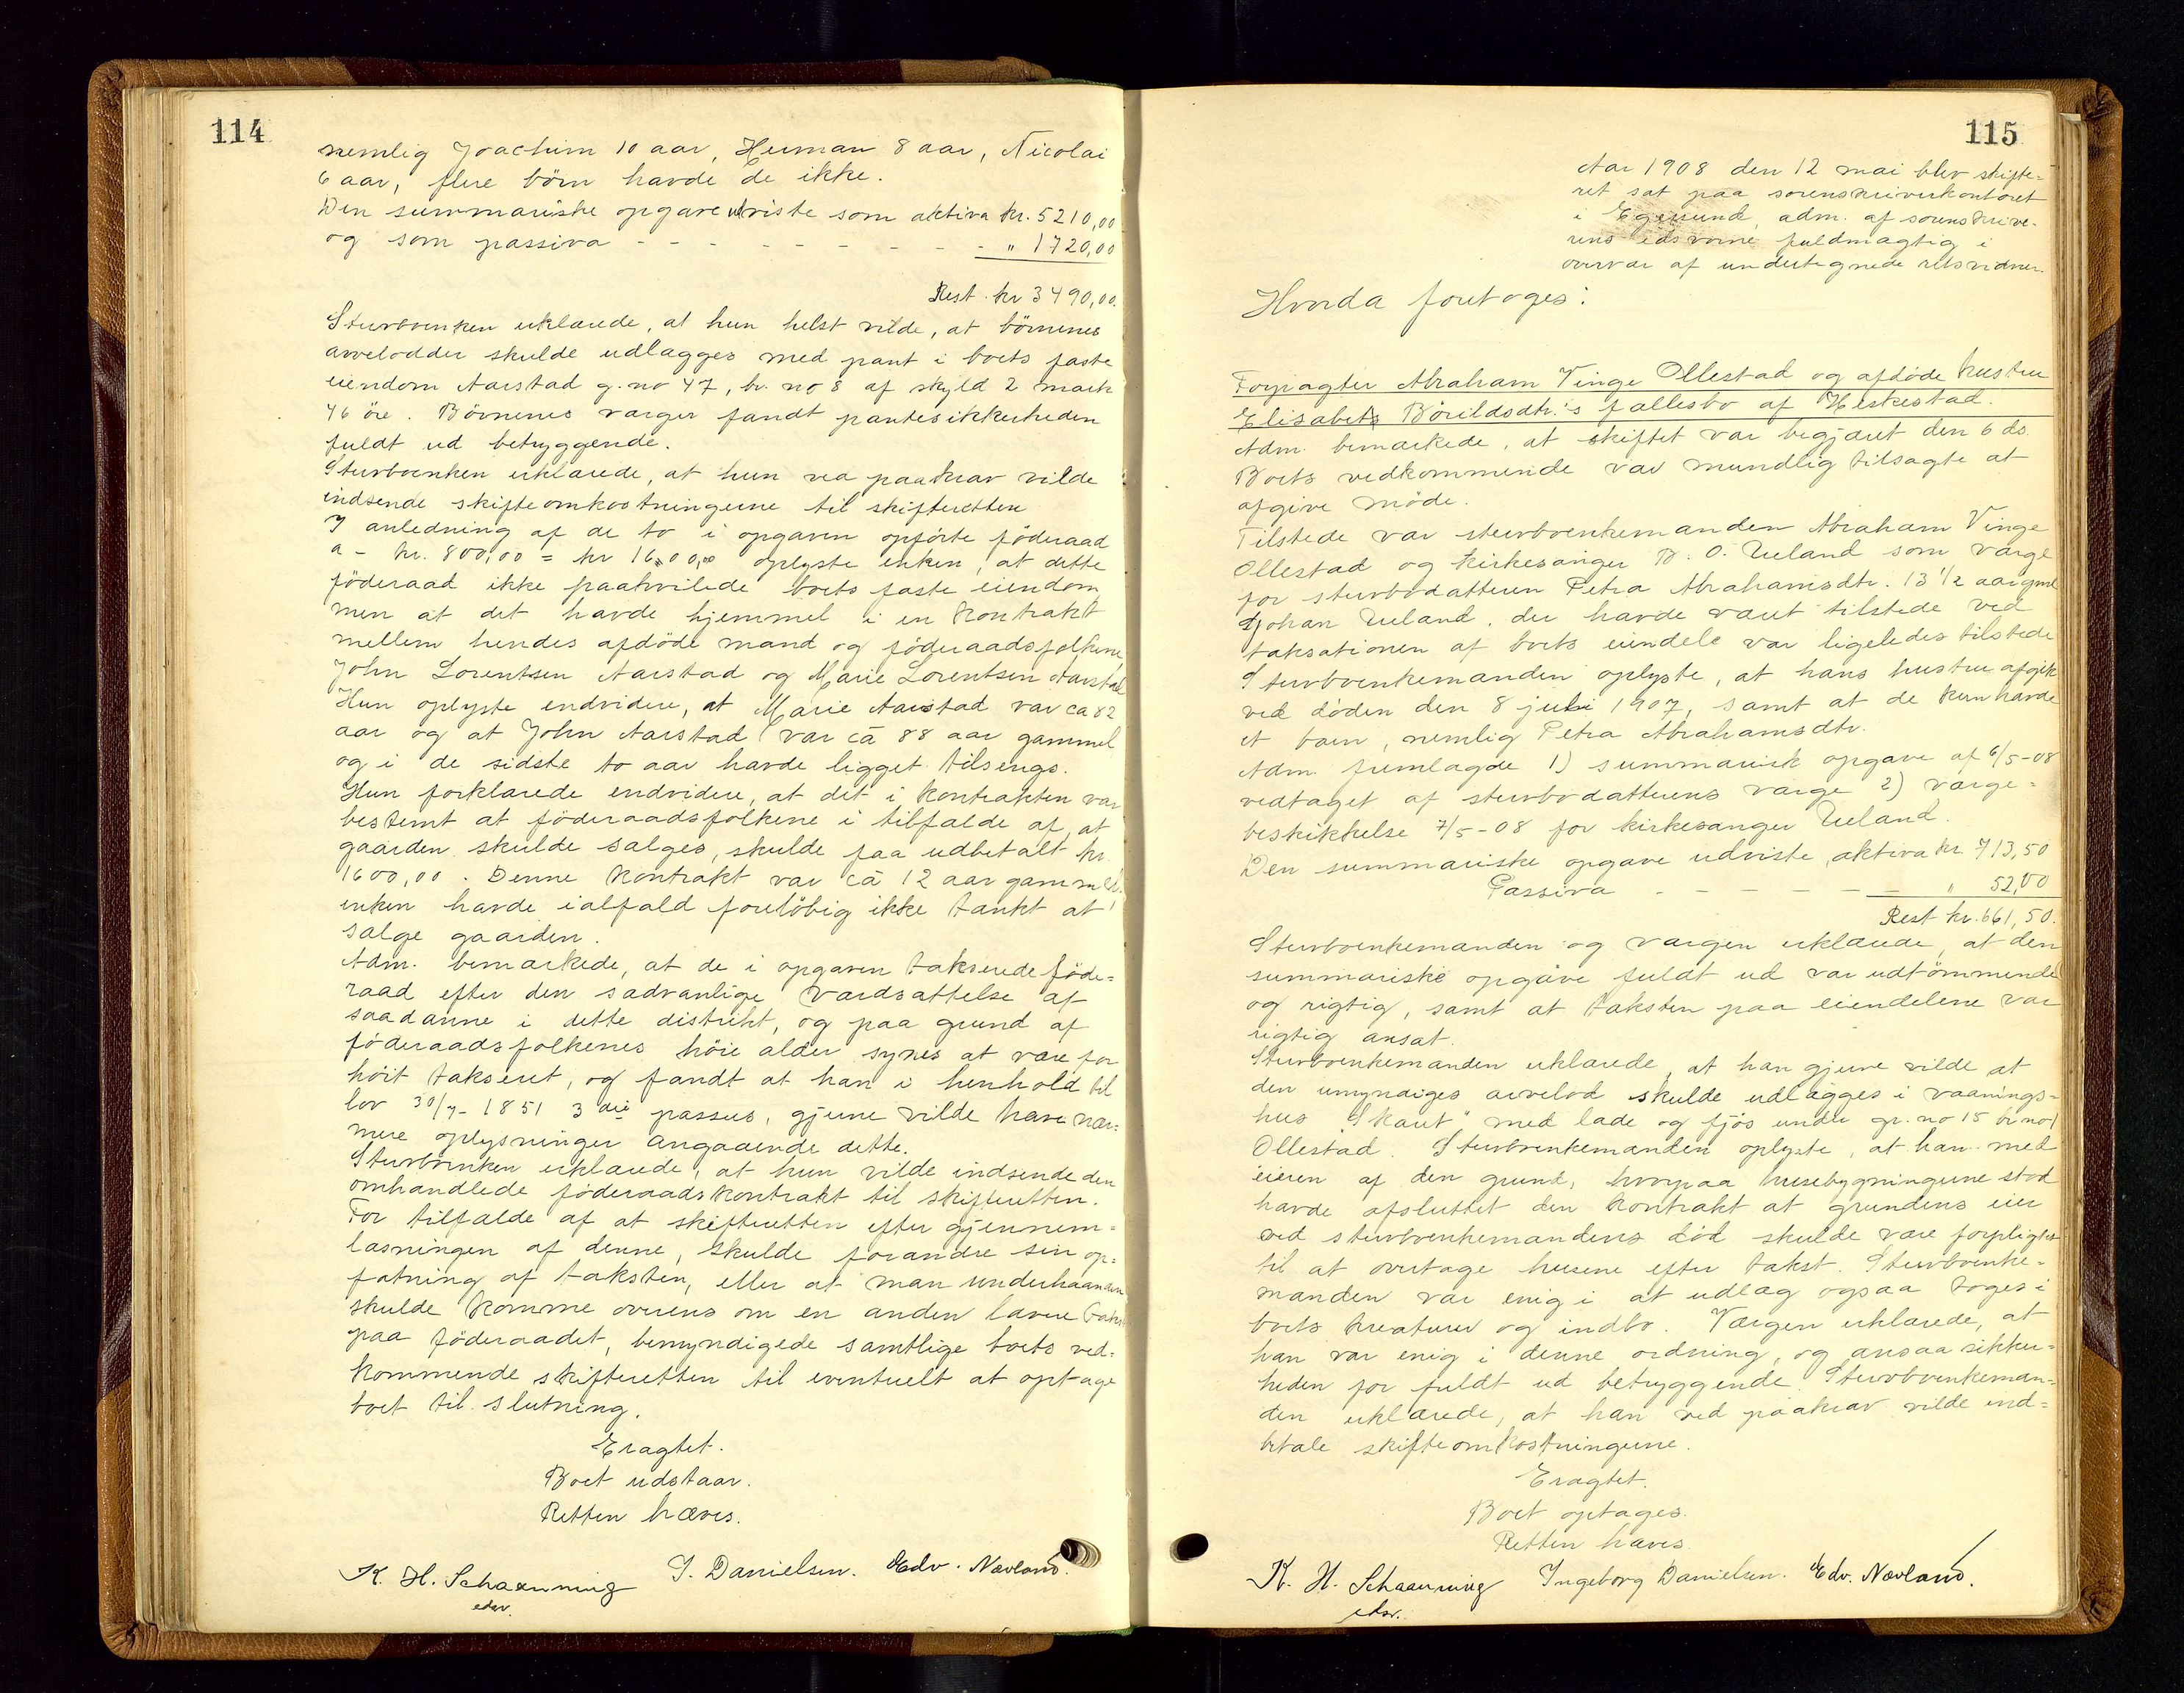 114
nemlig Joachim 10 aar, Herman 8 aar, Nicolai
6 aar, flere börn havde de ikke.
Den summariske opgave udviste som aktiva kr. 5210,00
og som passiva - - - - - - - - - " 1720,00
Rest kr 3490,00.
Sterboenken erklærede, at hun helst vilde, at börnenes
arvelodder skulde udlægges med pant i boets faste
eiendom Aarstad g. no 47, br. no 8 af skyld 2 mark
46 öre. Börnenes værger fandt pantesikkerheden
fuldt ud betryggende.
Sterboenken erklærede, at hun ved paakrav vilde
indsende skifteomkostningerne til skifteretten
I anledning af de to i opgaven opförte föderaad
a - kr. 800,00 = kr 1600,00 oplyste enken, at dette
föderaad ikke paahvilede boets faste eiendom,
men at det havde hjemmel i en kontrakt
mellem hendes afdöde mand og föderaadsfolkene,
John Lorentsen Aarstad og Marie Lorentsen Aarstad
Hun oplyste endvidere, at Marie Aarstad var ca 82
aar og at John Aarstad var ca 88 aar gammel
og i de sidste to aar havde ligget tilsengs.
Hun forklarede endvidere, at det i kontrakten var
bestemt at föderaadsfolkene i tilfælde af, at
gaarden skulde sælges, skulde faa udbetalt kr.
1600,00. Denne kontrakt var ca 12 aar gammel.
enken havde ialfald forelöbig ikke tænkt at
sælge gaarden.
Adm. bemærkede, at de i opgaven takserede föde=
raad efter den sædvanlige værdsættelse af
saadanne i dette distrikt, og paa grund af
föderaadsfolkenes höie alder synes at være for
höit takseret, og fandt at han i henhold til
lov 30/7- 1851 3die passus, gjerne vilde have nær=
mere oplysninger angaaende dette.
Sterboenken erklærede, at hun vilde indsende den
omhandlede föderaadskontrakt til skifteretten.
For tilfælde af at skifteretten efter gjennem=
læsningen af denne, skulde forandre sin op=
fatning af taksten, eller at man underhaanden
skulde komme overens om en anden lavere takst
paa föderaadet, bemyndigede samtlige boets ved=
kommende skifteretten til eventuelt at optage
boet til slutning.
Eragtet.
Boet udstaar.
Retten hæves.
K. H. Schaanning I. Danielsen. Edv. Nævland.
edsv.
115
Aar 1908 den 12 mai blev skifte=
ret sat paa sorenskriverkontoret
i Egersund, adm. af sorenskrive-
rens edsvorne fuldmægtig i
overvær af undertegnede retsvidner.
Hvorda foretoges:
Forpagter Abraham Vinge Ollestad og afdöde hustru
Elisabets Börildsdtr.'s fællesbo af Heskestad.
Adm. bemærkede, at skiftet var begjæret den 6 ds.
Boets vedkommende var mundlig tilsagte at
afgive möde.
Tilstede var sterboenkemanden Abraham Vinge
Ollestad og kirkesanger B. O. Ueland som værge
for sterbodatteren Petra Abrahamsdtr. 13 1/2 aar gml
Johan Ueland, der havde været tilstede ved
taksationen af boets eiendele var ligeledes tilstede
Sterboenkemanden oplyste, at hans hustru afgik
ved döden den 8 juli 1907, samt at de kun havde
et barn, nemlig Petra Abrahamsdtr.
Adm. fremlagde 1) summarisk opgave af 6/5-08
vedtaget af sterbodatterens værge 2) værge=
beskikkelse 7/5-08 for kirkesanger Ueland.
Den summariske opgave udviste aktiva kr. 713,50
Passiva - - - - - - " 52,00
Rest kr. 661,50.
Sterboenkemanden og værgen erklærede, at den
summariske opgave fuldt ud var udtömmende
og rigtig, samt at taksten paa eiendelene var
rigtig ansat.
Sterboenkemanden erklærede, at han gjerne vilde at
den umyndiges arvelod skulde udlægges i vaanings=
hus "Skaret" med lade og fjös under gr. no 15 br no 1
Ollestad. Sterboenkemanden oplyste, at han med
eieren af den grund, hvorpaa husebygningerne stod
havde afsluttet den kontrakt at grundens eier
ved sterboenkemandens död skulde være forpligtet
til at overtage husene efter takst. Sterboenke=
manden var enig i at udlæg ogsaa toges i
boets kreaturer og indbo. Værgen erklærede, at
han var enig i denne ordning, og ansaa sikker=
heden for fuldt ud betryggende. Sterboenkeman=
den erklærede, at han ved paakrav vilde ind=
betale skifteomkostningerne.
Eragtet.
Boet optages.
Retten hæves
K. H. Schaanning Ingeborg Danielsen. Edv. Nævland.
edsv.